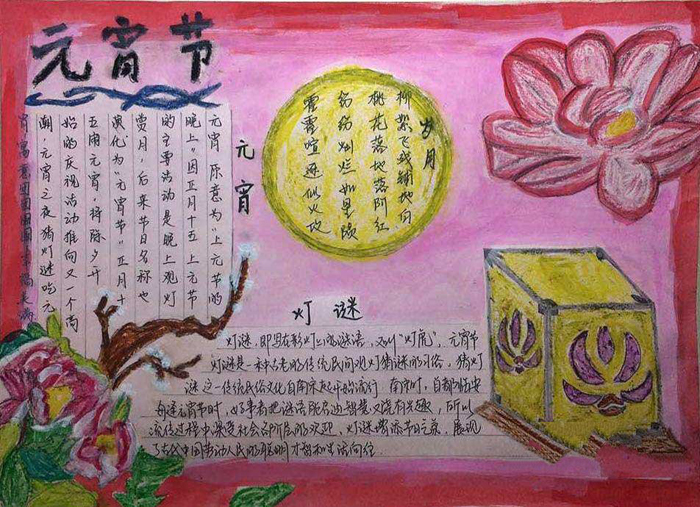 元宵节
元宵
元宵 原意为“上元节的
晚上”因正月十五上元节
的主要活动是晚上观灯
赏月，后来节日名称也
演化为“元宵节”正月十
五闹元宵，将除夕开
始的庆视活动推向又一个高
潮，元宵之夜猜灯谜吃元
宵寓意团团圆圆幸福美满
岁月
柳絮飞残铺地白
桃花落地落阶红
纷纷灿烂如星陨
霍霍喧逐似火攻
灯谜
灯谜，即写在彩灯上的谜语，又叫“灯虎”，元宵节
灯谜是一种古老的传统民间观灯猜谜的习俗，猜灯
谜这一传统民俗文化自南宋起开始流行 南宋时，首都临安
每逢元宵节时，好事者把谜语能启迪智慧又饶有兴趣，所以
流传过程中深受社会各阶层的欢迎，灯谜增添节日气氛，展现
了古代中国劳动人民的聪明才智和生活向往